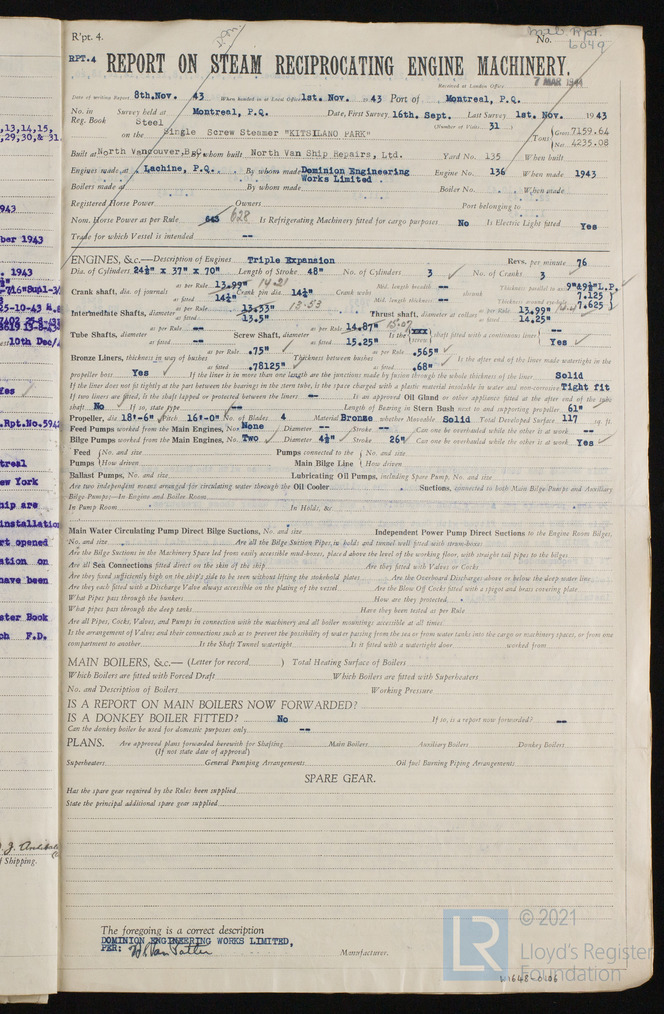 R'pt. 4.
No.
6049
RPT.4 REPORT ON STEAM RECIPROCATING ENGINE MACHINERY.
Received at London Office 7 MAR 1944
Date of writing Report 8th.Nov. 43 When handed in at Local Office 1st. Nov. 1943 Port of Montreal, P.Q.
No. in Reg. Book Survey held at Montreal, P.Q. Date, First Survey 16th. Sept. Last Survey 1st. Nov. 1943
(Number of Visits 31)
on the Steel Single Screw Steamer "KITSILANO PARK" Tons Gross 7159.64
Net 4235.08
Built at North Vancouver, B.C. By whom built North Van Ship Repairs, Ltd. Yard No. 135 When built
Engines made at Lachine, P.Q. By whom made Dominion Engineering Works Limited. Engine No. 136 When made 1943
Boilers made at By whom made Boiler No. When made
Registered Horse Power Owners Port belonging to
Nom. Horse Power as per Rule 628 Is Refrigerating Machinery fitted for cargo purposes No Is Electric Light fitted Yes
Trade for which Vessel is intended --
ENGINES, &c.—Description of Engines Triple Expansion Revs. per minute 76
Dia. of Cylinders 24½" x 37" x 70" Length of Stroke 48" No. of Cylinders 3 No. of Cranks 3
Crank shaft, dia. of journals as per Rule 13.99" 14.21 as fitted 14¼" Crank pin dia. 14¼" Crank webs Mid. length breadth -- Mid. length thickness -- shrunk Thickness parallel to axis 9"&9½"L.P. Thickness around eyehole 7.125 7.625
Intermediate Shafts, diameter as per Rule 13.33" 13.53 as fitted 13.5" Thrust shaft, diameter at collars as per Rule 13.99" as fitted 14.25"
Tube Shafts, diameter as per Rule -- as fitted -- Screw Shaft, diameter as per Rule 14.87" as fitted 15.25" Is the screw shaft fitted with a continuous liner Yes
Bronze Liners, thickness in way of bushes as per Rule .75" as fitted .78125" Thickness between bushes as per Rule .565" as fitted .68" Is the after end of the liner made watertight in the
propeller boss Yes If the liner is in more than one length are the junctions made by fusion through the whole thickness of the liner Solid
If the liner does not fit tightly at the part between the bearings in the stern tube, is the space charged with a plastic material insoluble in water and non-corrosive Tight fit
If two liners are fitted, is the shaft lapped or protected between the liners -- Is an approved Oil Gland or other appliance fitted at the after end of the tube
shaft No If so, state type -- Length of Bearing in Stern Bush next to and supporting propeller 61"
Propeller, dia. 18'-6" Pitch 16'-0" No. of Blades 4 Material Bronze whether Moveable Solid Total Developed Surface 117 sq. ft.
Feed Pumps worked from the Main Engines, No. None Diameter -- Stroke -- Can one be overhauled while the other is at work --
Bilge Pumps worked from the Main Engines, No. Two Diameter 4½" Stroke 26" Can one be overhauled while the other is at work Yes
Feed Pumps No. and size How driven Pumps connected to the Main Bilge Line No. and size How driven
Ballast Pumps, No. and size Lubricating Oil Pumps, including Spare Pump, No. and size
Are two independent means arranged for circulating water through the Oil Cooler Suctions, connected to both Main Bilge Pumps and Auxiliary
Bilge Pumps:—In Engine and Boiler Room
In Pump Room In Holds, &c.
Main Water Circulating Pump Direct Bilge Suctions, No. and size Independent Power Pump Direct Suctions to the Engine Room Bilges,
No. and size Are all the Bilge Suction Pipes, in holds and tunnel well fitted with strum-boxes
Are the Bilge Suctions in the Machinery Space led from easily accessible mud-boxes, placed above the level of the working floor, with straight tail pipes to the bilges
Are all Sea Connections fitted direct on the skin of the ship Are they fitted with Valves or Cocks
Are they fixed sufficiently high on the ship's side to be seen without lifting the stokehold plates Are the Overboard Discharges above or below the deep water line
Are they each fitted with a Discharge Valve always accessible on the plating of the vessel Are the Blow Off Cocks fitted with a spigot and brass covering plate
What Pipes pass through the bunkers How are they protected
What pipes pass through the deep tanks Have they been tested as per Rule
Are all Pipes, Cocks, Valves, and Pumps in connection with the machinery and all boiler mountings accessible at all times
Is the arrangement of Valves and their connections such as to prevent the possibility of water passing from the sea or from water tanks into the cargo or machinery spaces, or from one
compartment to another Is the Shaft Tunnel watertight Is it fitted with a watertight door worked from
MAIN BOILERS, &c.— (Letter for record ) Total Heating Surface of Boilers
Which Boilers are fitted with Forced Draft Which Boilers are fitted with Superheaters
No. and Description of Boilers Working Pressure
IS A REPORT ON MAIN BOILERS NOW FORWARDED?
IS A DONKEY BOILER FITTED? No If so, is a report now forwarded? --
Can the donkey boiler be used for domestic purposes only --
PLANS. Are approved plans forwarded herewith for Shafting Main Boilers Auxiliary Boilers Donkey Boilers
(If not state date of approval)
Superheaters General Pumping Arrangements Oil fuel Burning Piping Arrangements
SPARE GEAR.
Has the spare gear required by the Rules been supplied
State the principal additional spare gear supplied
The foregoing is a correct description
DOMINION ENGINEERING WORKS LIMITED,
PER:
Manufacturer.
LR © 2021
Lloyd's Register
Foundation
W1648-0106
,13,14,15,
,29,30,& 31
943
ber 1943
. 1943
25-10-43
10th Dec/
Yes
.Rpt.No.594
treal
ew York
hip are
installatio
rt opened
ation on
have been
ster Book
ch F.D.
f Shipping.